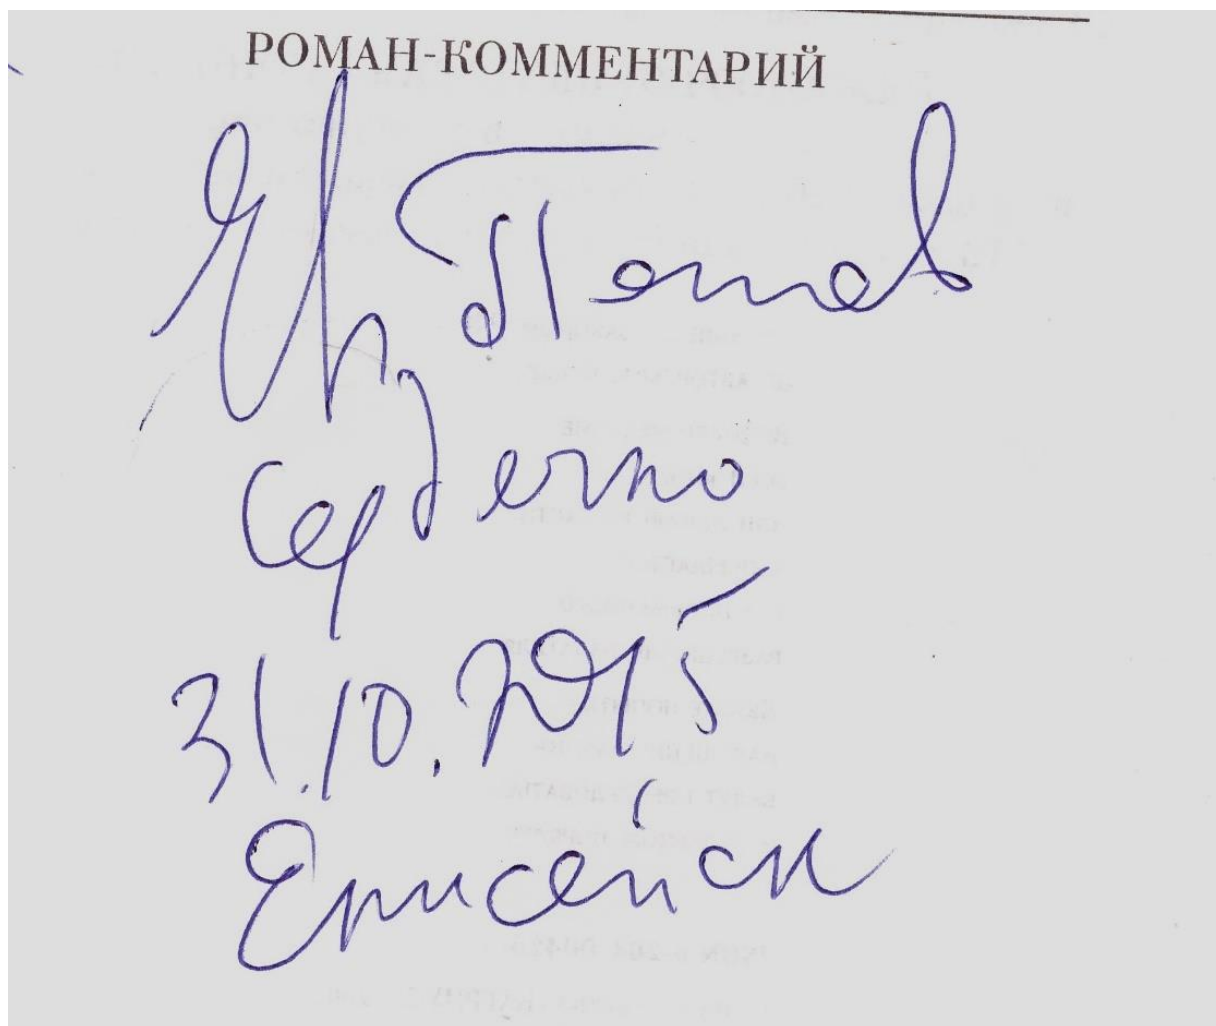 РОМАН-КОММЕНТАРИЙ
Попов
сердечно
31.10.2015
Енисейск